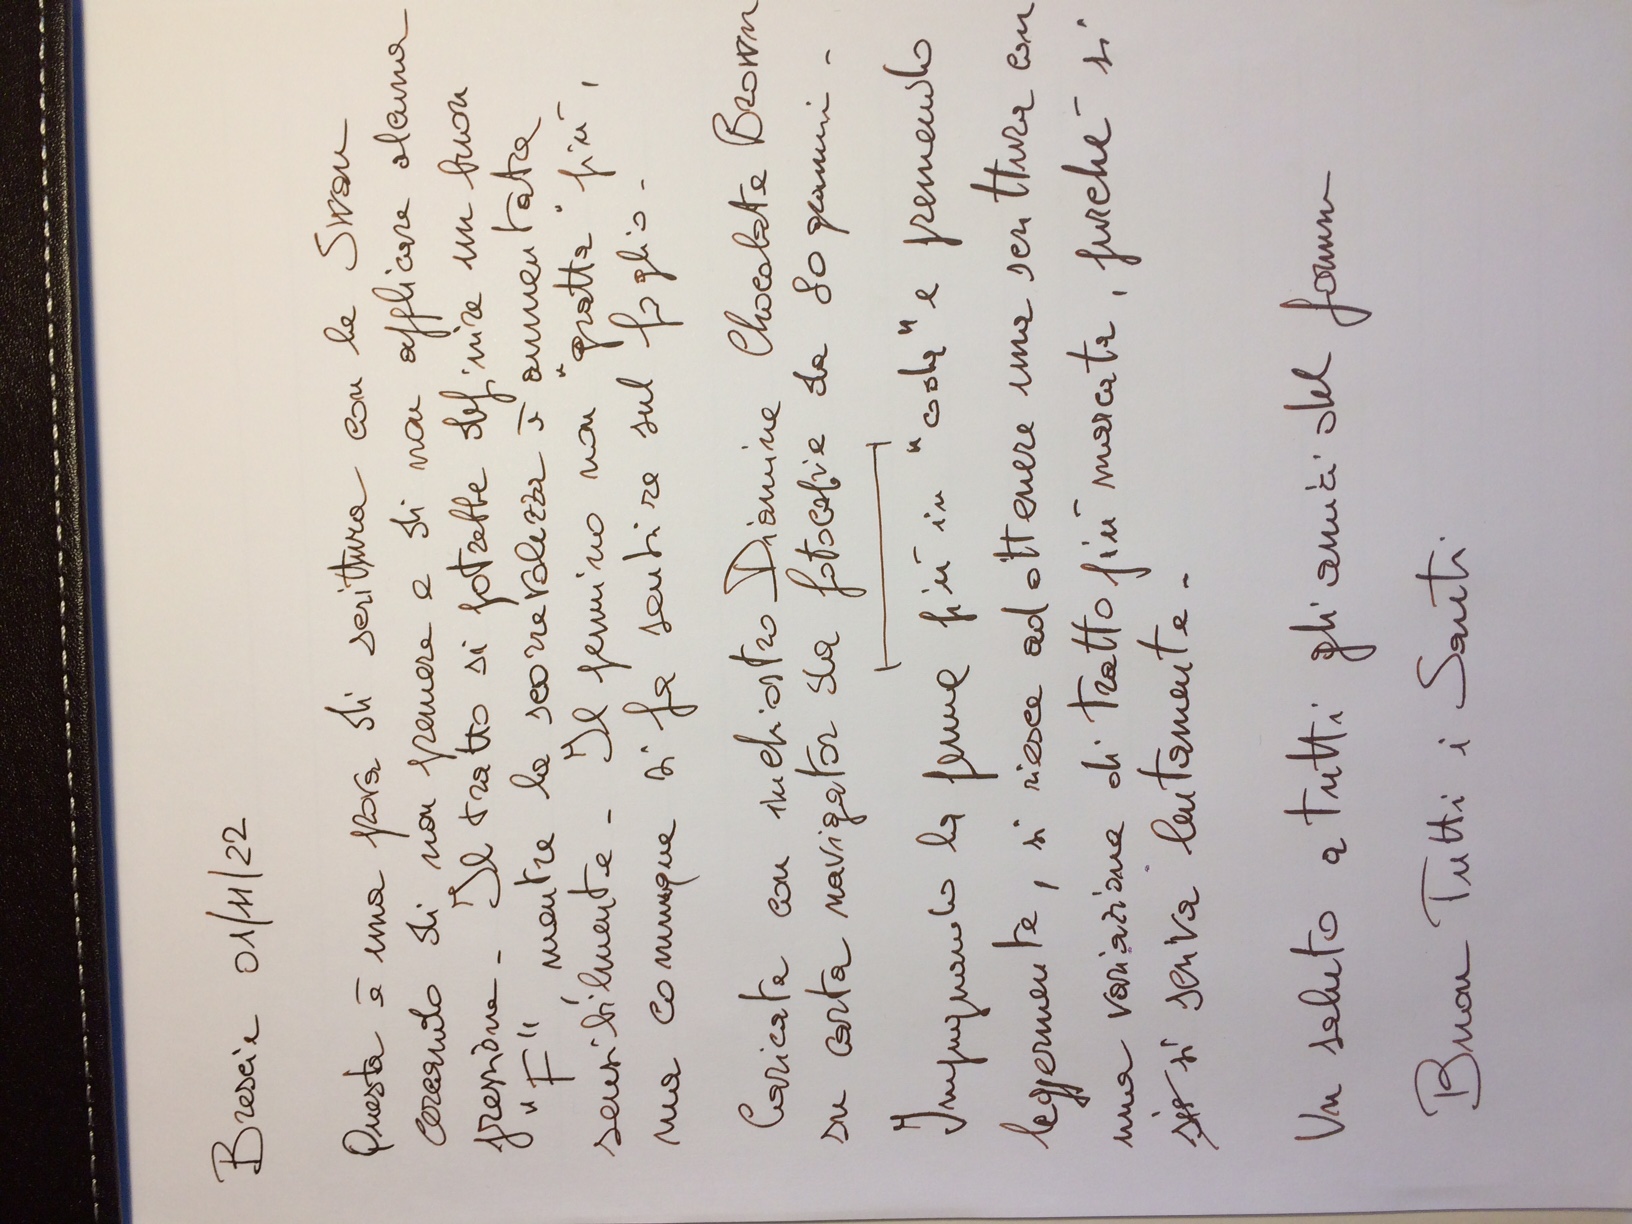 Brescia 01/11/22
Questa è una prova di scrittura con la Swan
cercando di non premere e di non applicare alcuna
pressione - Il tratto si potrebbe definire un buon
"F" mentre la scorrevolezza è aumentata
sensibilmente - Il pennino non "gratta" più,
ma comunque si fa sentire sul foglio -
Caricata con inchiostro Diamine Chocolate Brown
su carta navigator da fotocopie da 80 grammi -
Impugnando la penna più in "coda" e premendo
leggermente, si riesce ad ottenere una scrittura con
una variazione di tratto più marcata, purché si
si scriva lentamente -
Un saluto a tutti gli amici del forum
Buon Tutti i Santi.